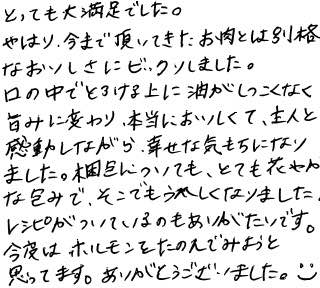 とっても大満足でした。
やはり、今まで頂いてきたお肉とは別格
なおいしさにビックリしました。
口の中でとろける上に油がしつこくなく
旨みに変わり、本当においしくて、主人と
感動しながら、幸せな気もちになり
ました。梱包についても、とても花やか
な包みで、そこでもうれしくなりました。
レシピがついているのもありがたいです。
今度はホルモンをたのんでみようと
思ってます。ありがとうございました。☺